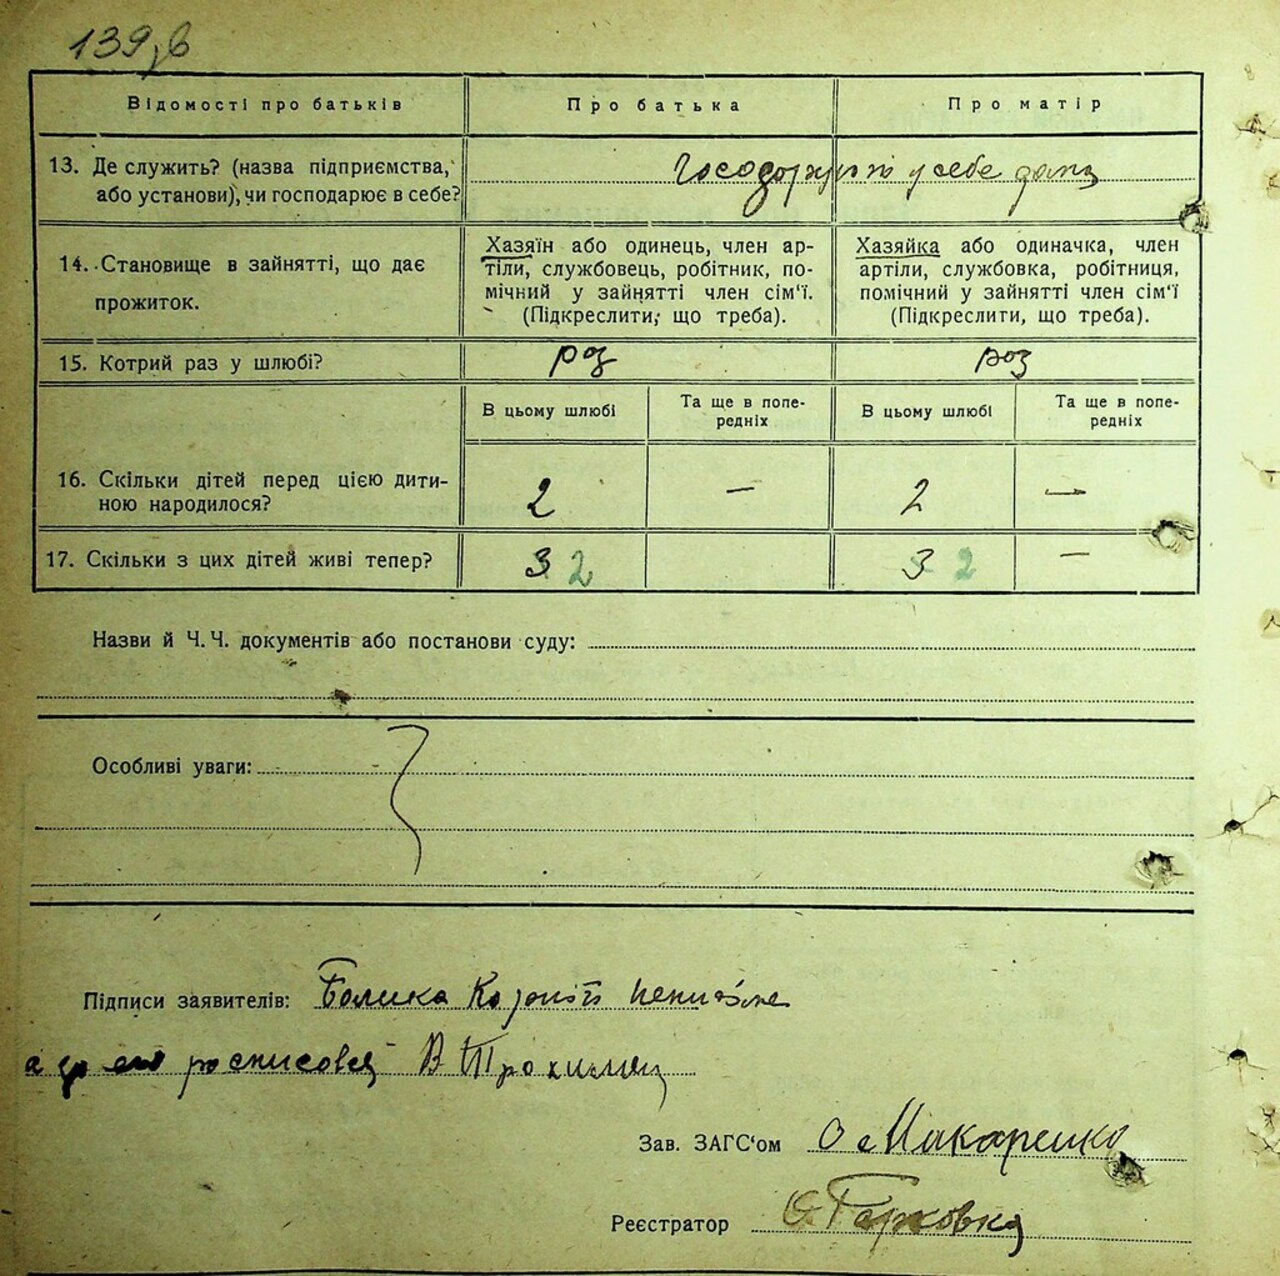 139,в
Відомості про батьків Про батька Про матір
13. Де служить? (назва підприємства, або установи), чи господарює в себе? у себе дома
14. Становище в зайнятті, що дає прожиток.
Хазяїн або одинець, член ар-
тіли, службовець, робітник, по-
мічний у зайнятті член сім'ї.
(Підкреслити, що треба).
Хазяйка або одиначка, член
артіли, службовка, робітниця,
помічний у зайнятті член сім'ї
(Підкреслити, що треба).
15. Котрий раз у шлюбі? раз раз
В цьому шлюбі Та ще в попе-
редніх В цьому шлюбі Та ще в попе-
редніх
16. Скільки дітей перед цією дити-
ною народилося? 2 — 2 —
17. Скільки з цих дітей живі тепер? 3 2 3 2 —
Назви й Ч. Ч. документів або постанови суду:
Особливі уваги:
Підписи заявителів:
В Трохимец
Зав. ЗАГС'ом О Макаренко
Реєстратор